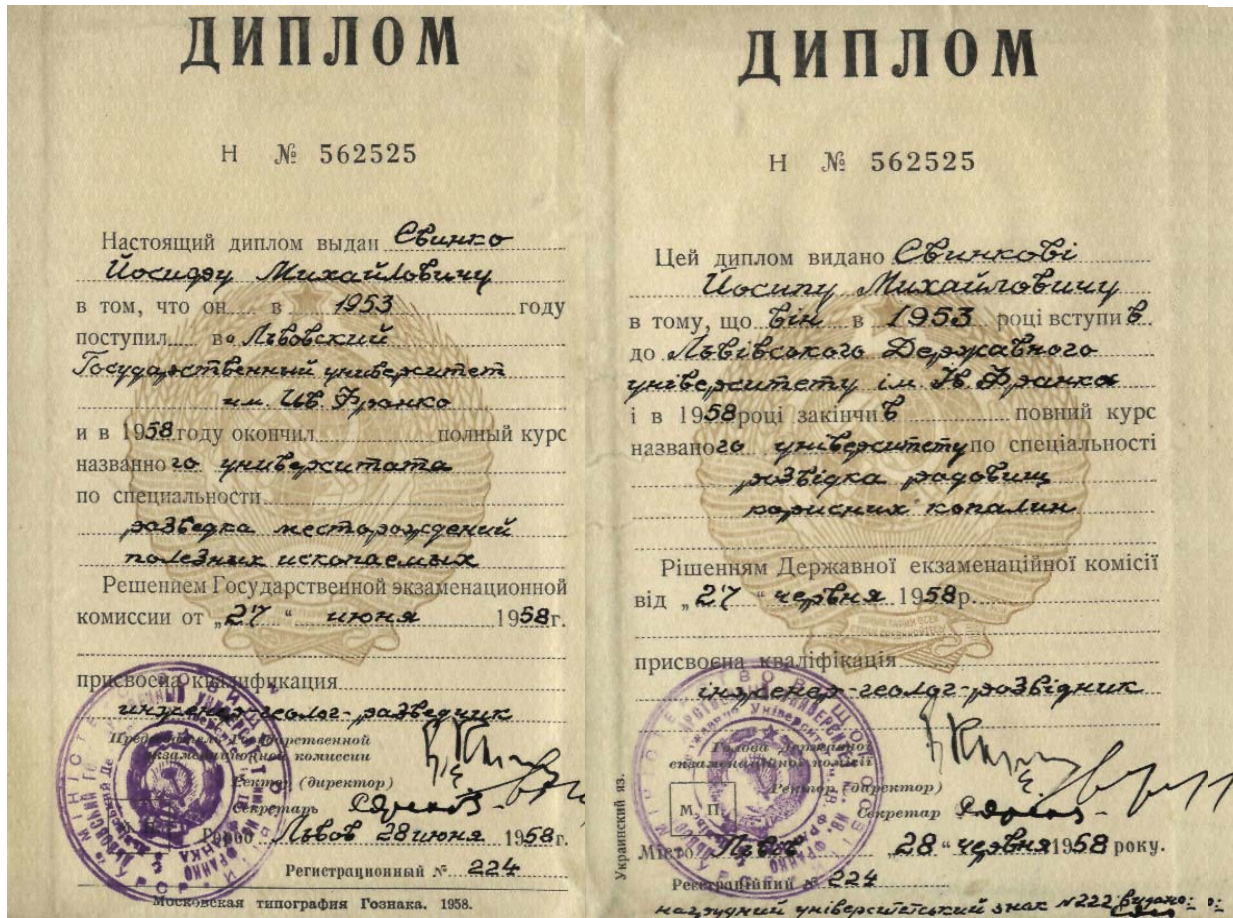 ДИПЛОМ
Н № 562525
Настоящий диплом выдан Свинко
Йосифу Михайловичу
в том, что он в 1953 году
поступил во Львовский
Государственный университет
им. Ив. Франко
и в 1958 году окончил полный курс
названного университата
по специальности
разведка месторождений
полезных ископаемых
Решением Государственной экзаменационной
комиссии от „27“ июня 1958г.
присвоена квалификация
инженер-геолог-разведник
Председатель Государственной
экзаменационной комиссии
Ректор (директор)
Секретарь
Город Львов 28 июня 1958г.
Регистрационный № 224
Московская типография Гознака. 1958.
ДИПЛОМ
Н № 562525
Цей диплом видано Свинкові
Йосипу Михайловичу
в тому, що він в 1953 році вступив
до Львівського Державного
університету ім. Ів. Франка
і в 1958 році закінчив повний курс
названого університету по спеціальності
розвідка родовищ
корисних копалин
Рішенням Державної екзаменаційної комісії
від „27“ червня 1958р.
присвоєна кваліфікація
інженер-геолог-розвідник
Голова Державної
екзаменаційної комісії
Ректор (директор)
М. П.
Секретар
Місто Львов „28“ червня 1958 року.
Реєстраційний № 224
нагрудний університетський знак №222 видано:
Украинский яз.